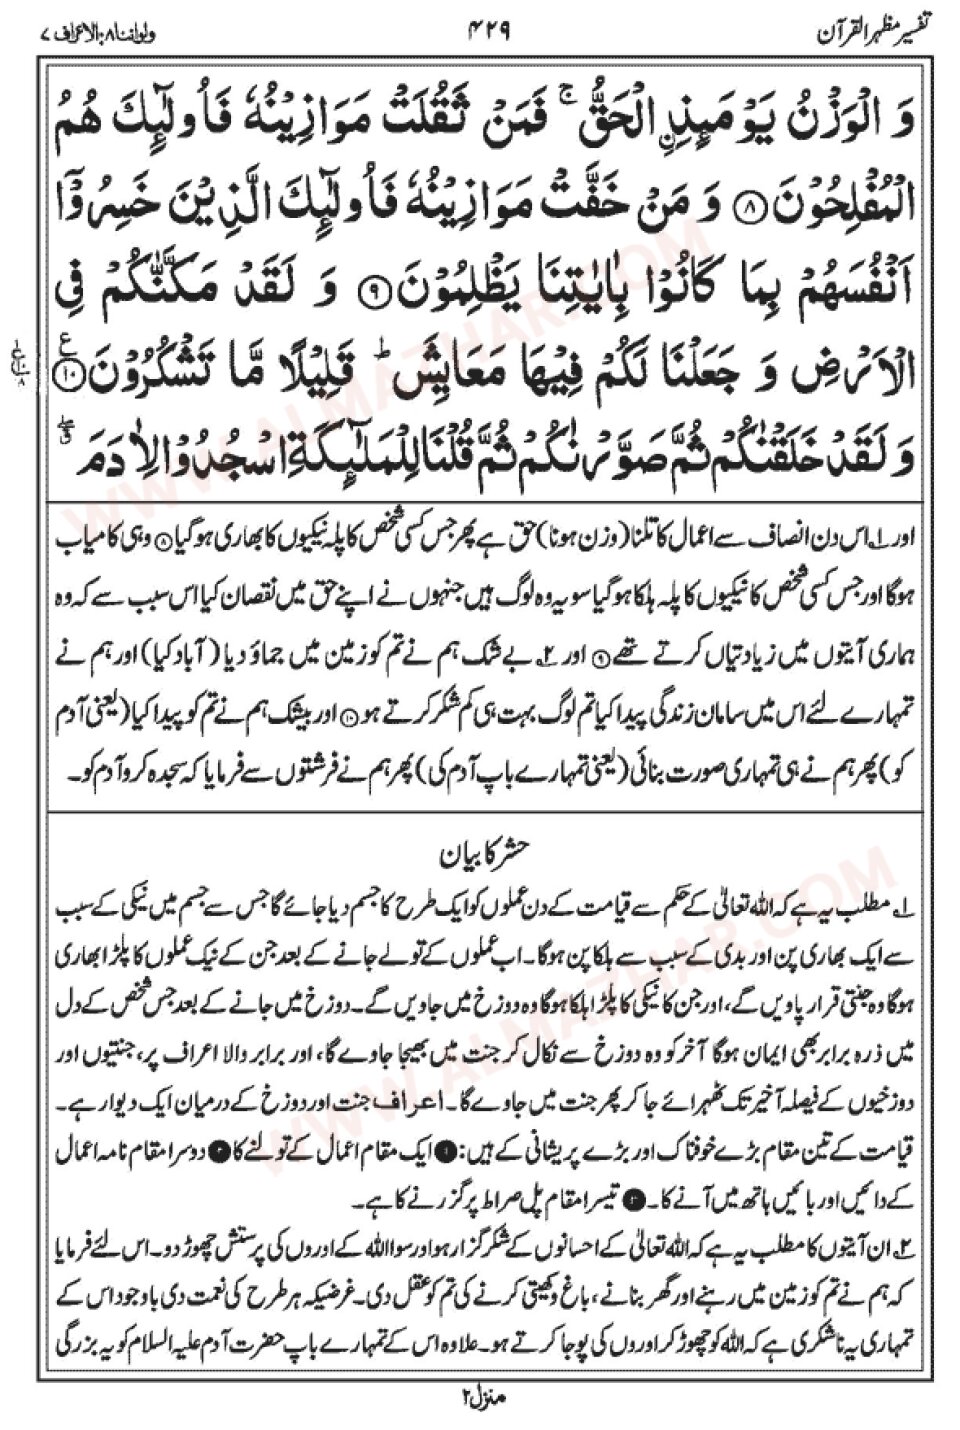 تفسیر مظہر القرآن
۴۲۹
ولواننا ۸: الاعراف ۷
وَ الْوَزْنُ يَوْمَئِذِ ِۨالْحَقُّ ۚ فَمَنْ ثَقُلَتْ مَوَازِيْنُهٗ فَاُولٰٓئِكَ هُمُ
الْمُفْلِحُوْنَ ﴿۸﴾ وَ مَنْ خَفَّتْ مَوَازِيْنُهٗ فَاُولٰٓئِكَ الَّذِيْنَ خَسِرُوْۤا
اَنْفُسَهُمْ بِمَا كَانُوْا بِاٰيٰتِنَا يَظْلِمُوْنَ ﴿۹﴾ وَ لَقَدْ مَكَّنّٰكُمْ فِى
الْاَرْضِ وَ جَعَلْنَا لَكُمْ فِيْهَا مَعَايِشَ ؕ قَلِيْلًا مَّا تَشْكُرُوْنَ ﴿۱۰﴾ ع
وَ لَقَدْ خَلَقْنٰكُمْ ثُمَّ صَوَّرْنٰكُمْ ثُمَّ قُلْنَا لِلْمَلٰٓئِكَةِ اسْجُدُوْا لِاٰدَمَ
اور ۱؎ اس دن انصاف سے اعمال کا تلنا (وزن ہونا) حق ہے پھر جس کسی شخص کا پلہ نیکیوں کا بھاری ہو گیا ﴿۸﴾ وہی کامیاب
ہوگا اور جس کسی شخص کا نیکیوں کا پلہ ہلکا ہو گیا سو یہ وہ لوگ ہیں جنہوں نے اپنے حق میں نقصان کیا اس سبب سے کہ وہ
ہماری آیتوں میں زیادتیاں کرتے تھے ﴿۹﴾ اور ۲؎ بے شک ہم نے تم کو زمین میں جماؤ دیا (آباد کیا) اور ہم نے
تمہارے لئے اس میں سامان زندگی پیدا کیا تم لوگ بہت ہی کم شکر کرتے ہو ﴿۱۰﴾ اور بیشک ہم نے تم کو پیدا کیا (یعنی آدم
کو) پھر ہم نے ہی تمہاری صورت بنائی (یعنی تمہارے باپ آدم کی) پھر ہم نے فرشتوں سے فرمایا کہ سجدہ کرو آدم کو۔
حشر کا بیان
۱؎ مطلب یہ ہے کہ اللہ تعالیٰ کے حکم سے قیامت کے دن عملوں کو ایک طرح کا جسم دیا جائے گا جس سے جسم میں نیکی کے سبب
سے ایک بھاری پن اور بدی کے سبب سے ہلکا پن ہوگا۔ اب عملوں کے تولے جانے کے بعد جن کے نیک عملوں کا پلڑا بھاری
ہوگا وہ جنتی قرار پاویں گے، اور جن کا نیکی کا پلڑا ہلکا ہوگا وہ دوزخ میں جاویں گے۔ دوزخ میں جانے کے بعد جس شخص کے دل
میں ذرہ برابر بھی ایمان ہوگا آخر کو وہ دوزخ سے نکال کر جنت میں بھیجا جاوے گا، اور برابر والا اعراف پر، جنتیوں اور
دوزخیوں کے فیصلہ آخیر تک ٹھہرائے جا کر پھر جنت میں جاوے گا۔ اعراف جنت اور دوزخ کے درمیان ایک دیوار ہے۔
قیامت کے تین مقام بڑے خوفناک اور بڑے پریشانی کے ہیں: ۱ ایک مقام اعمال کے تولنے کا ۲ دوسرا مقام نامہ اعمال
کے دائیں اور بائیں ہاتھ میں آنے کا۔ ۳ تیسرا مقام پل صراط پر گزرنے کا ہے۔
۲؎ ان آیتوں کا مطلب یہ ہے کہ اللہ تعالیٰ کے احسانوں کے شکر گزار ہو اور سوا اللہ کے اوروں کی پرستش چھوڑ دو۔ اس لئے فرمایا
کہ ہم نے تم کو زمین میں رہنے اور گھر بنانے، باغ و کھیتی کرنے کی تم کو عقل دی۔ غرضیکہ ہر طرح کی نعمت دی باوجود اس کے
تمہاری یہ ناشکری ہے کہ اللہ کو چھوڑ کر اوروں کی پوجا کرتے ہو۔ علاوہ اس کے تمہارے باپ حضرت آدم علیہ السلام کو یہ بزرگی
منزل ۲
WWW.ALMAZHAR.COM
WWW.ALMAZHAR.COM